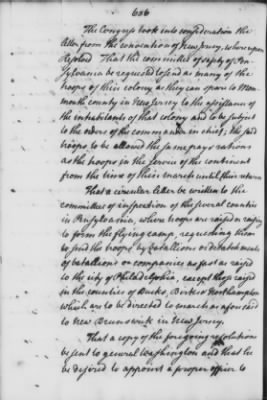 656
The Congress took into consideration the
letter from the convention of New Jersey, whereupon
Resolved That the committee of safety of Pen
sylvania be requested to send as many of the
troops of their colony as they can spare to Mon
mouth county in New Jersey to the assistance of
the inhabitants of that colony and to be subject
to the orders of the commander in chief; the said
troops to be allowed the same pay & rations
as the troops in the service of the continent
from the time of their march until their return
That a circular letter be written to the
committees of inspection of the several counties
in Pensylvania, where troops are raised or raising
to form the flying camp, requesting them
to send the troops by battalions or detachments
of battalions or companies as fast as raised
to the city of Philadelphia, except those raised
in the counties of Bucks, Berks & Northampton
which are to be directed to march as aforesaid
to New Brunswick in New Jersey.
That a copy of the foregoing resolutions
be sent to general Washington and that he
be desired to appoint a proper officer to